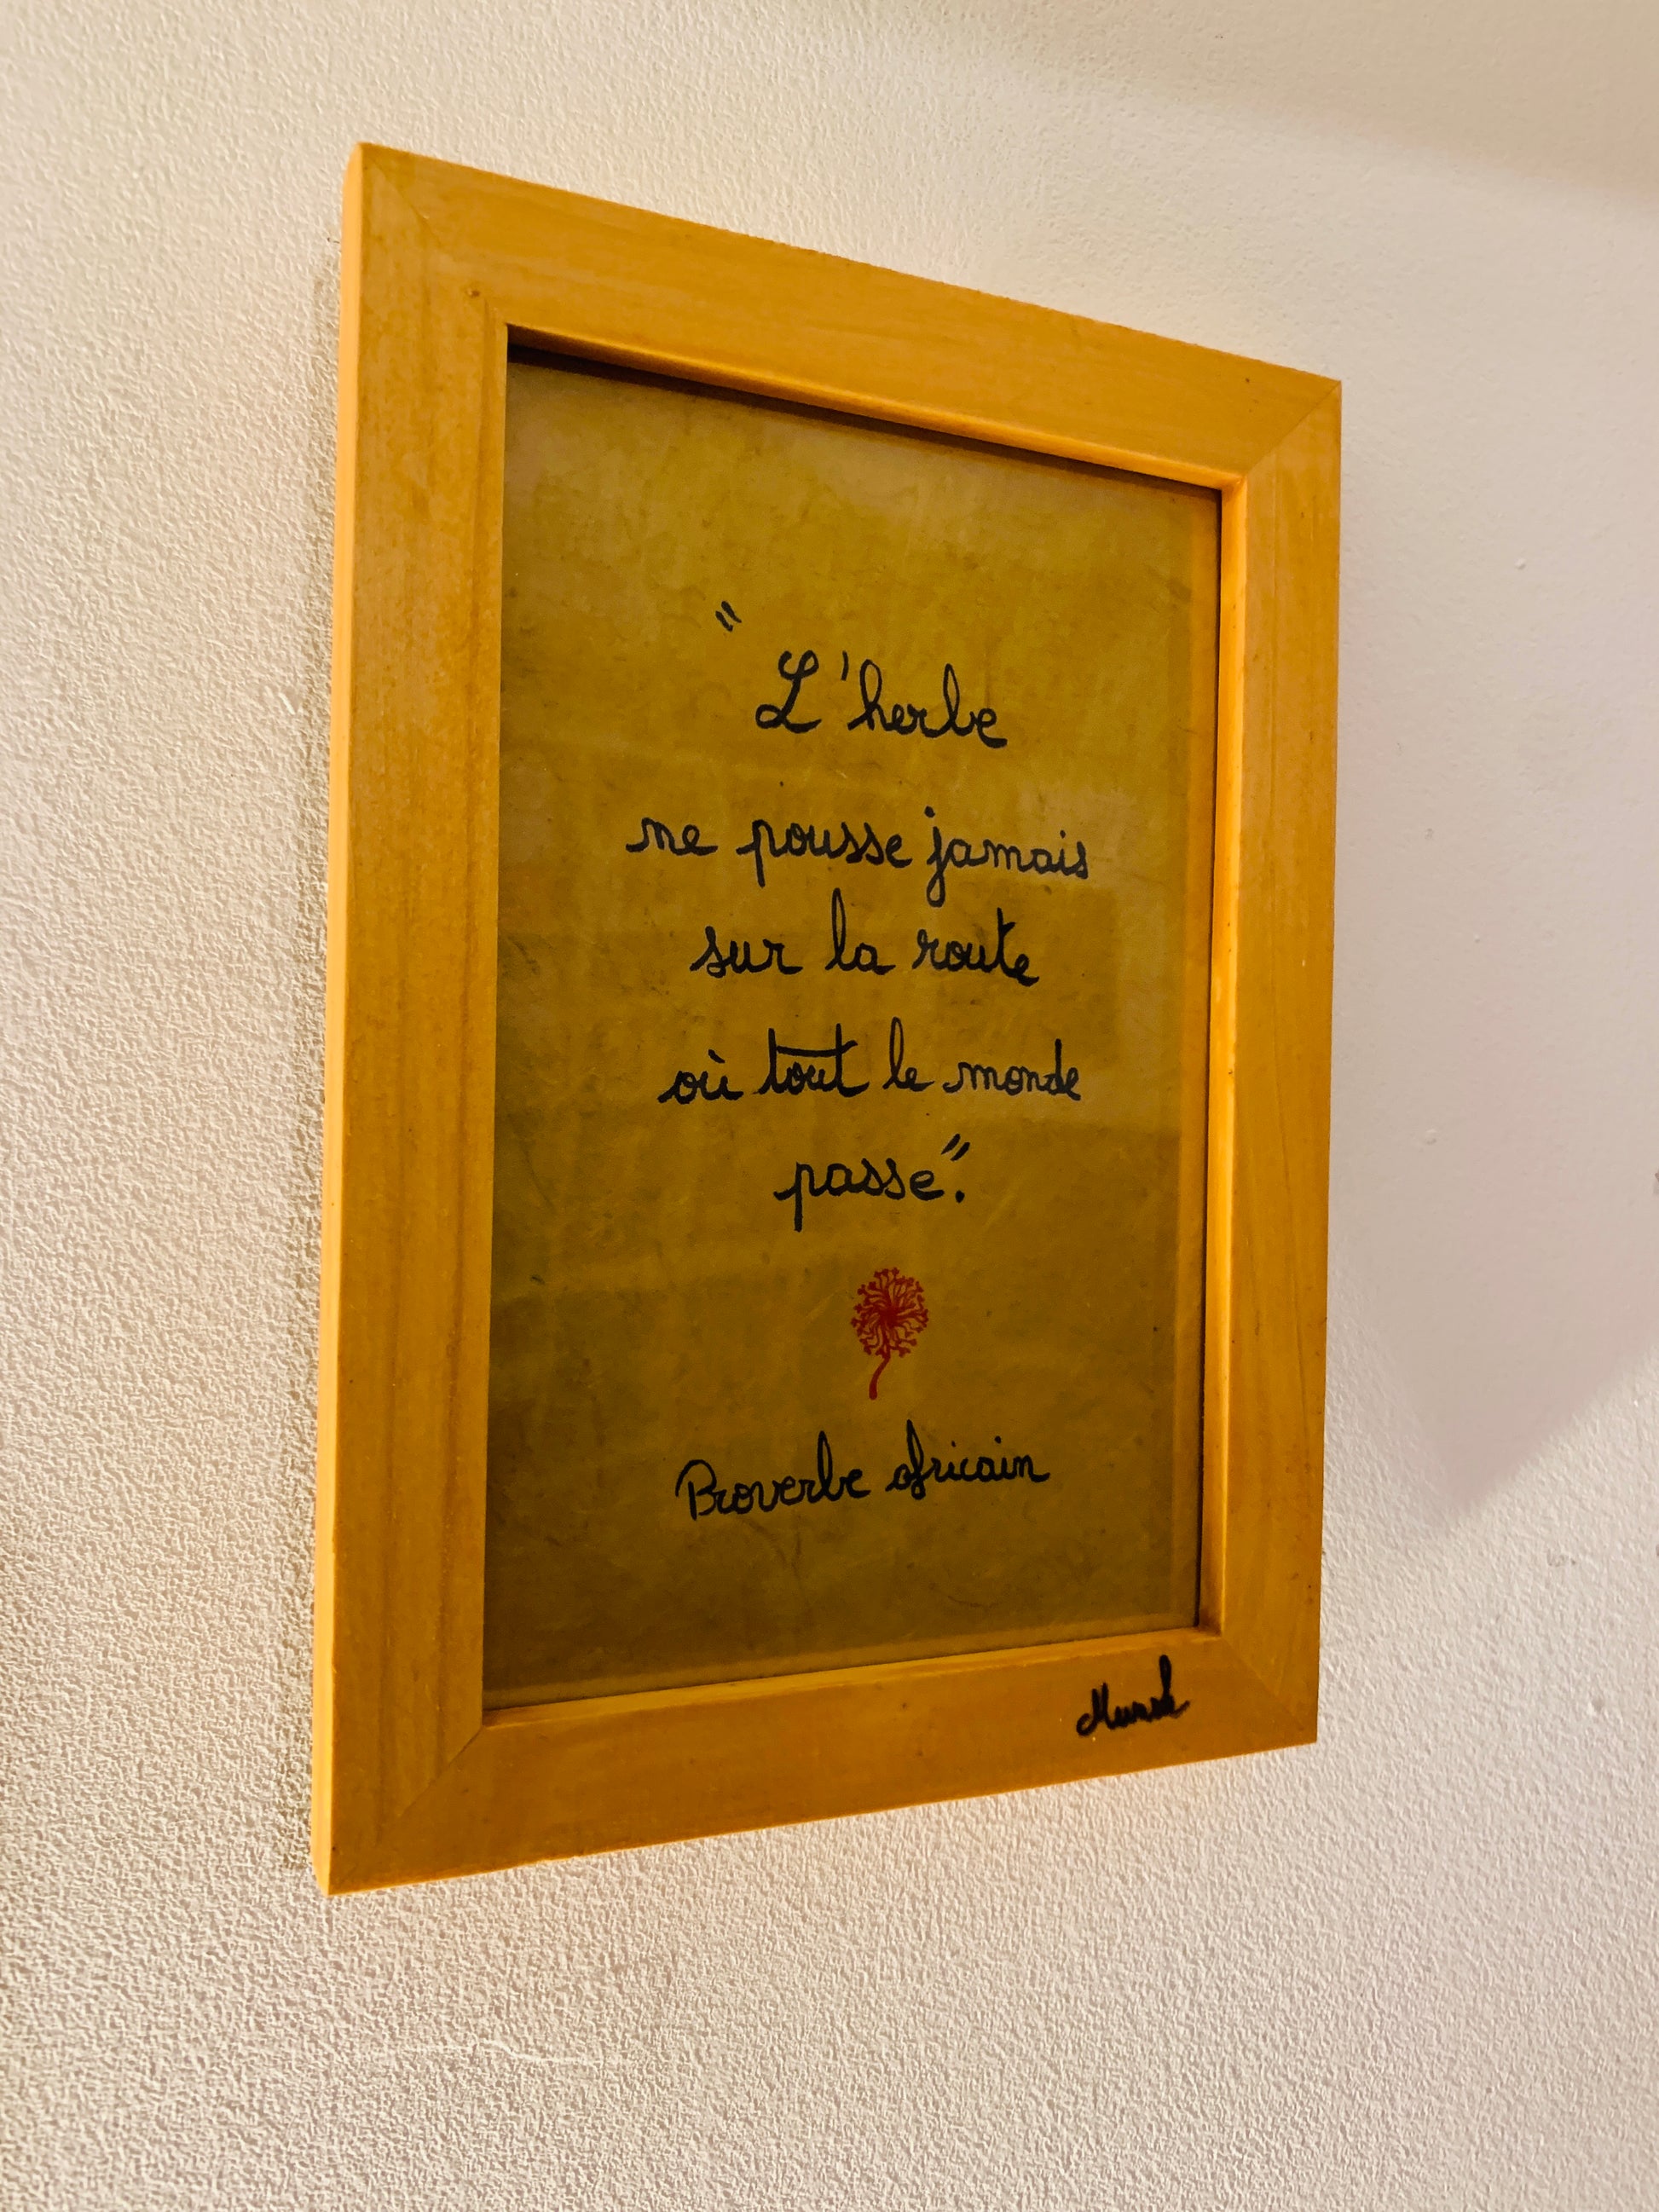 "
L'herbe
ne pousse jamais
sur la route
où tout le monde
passe".
Proverbe africain